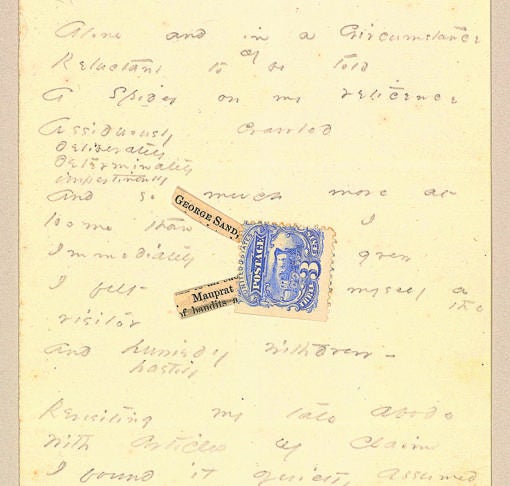 Alone and in a Circumstance
of
Reluctant to be told
A Spider on my reticence
Assiduously crawled
deliberately
determinately
impertinently
And so much more at
home than I
GEORGE SAND,
Immediately grew
UNITED STATES
POSTAGE
3
I felt - myself a
the
Mauprat
of bandits a
visitor
And hurriedly withdrew -
hastily
Revisiting my late abode
With articles of claim
I found it quietly assumed